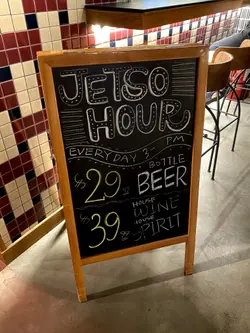 JETSO
HOUR
EVERYDAY 3- PM
$29 BOTTLE BEER
$39 HOUSE WINE
HOUSE SPIRIT